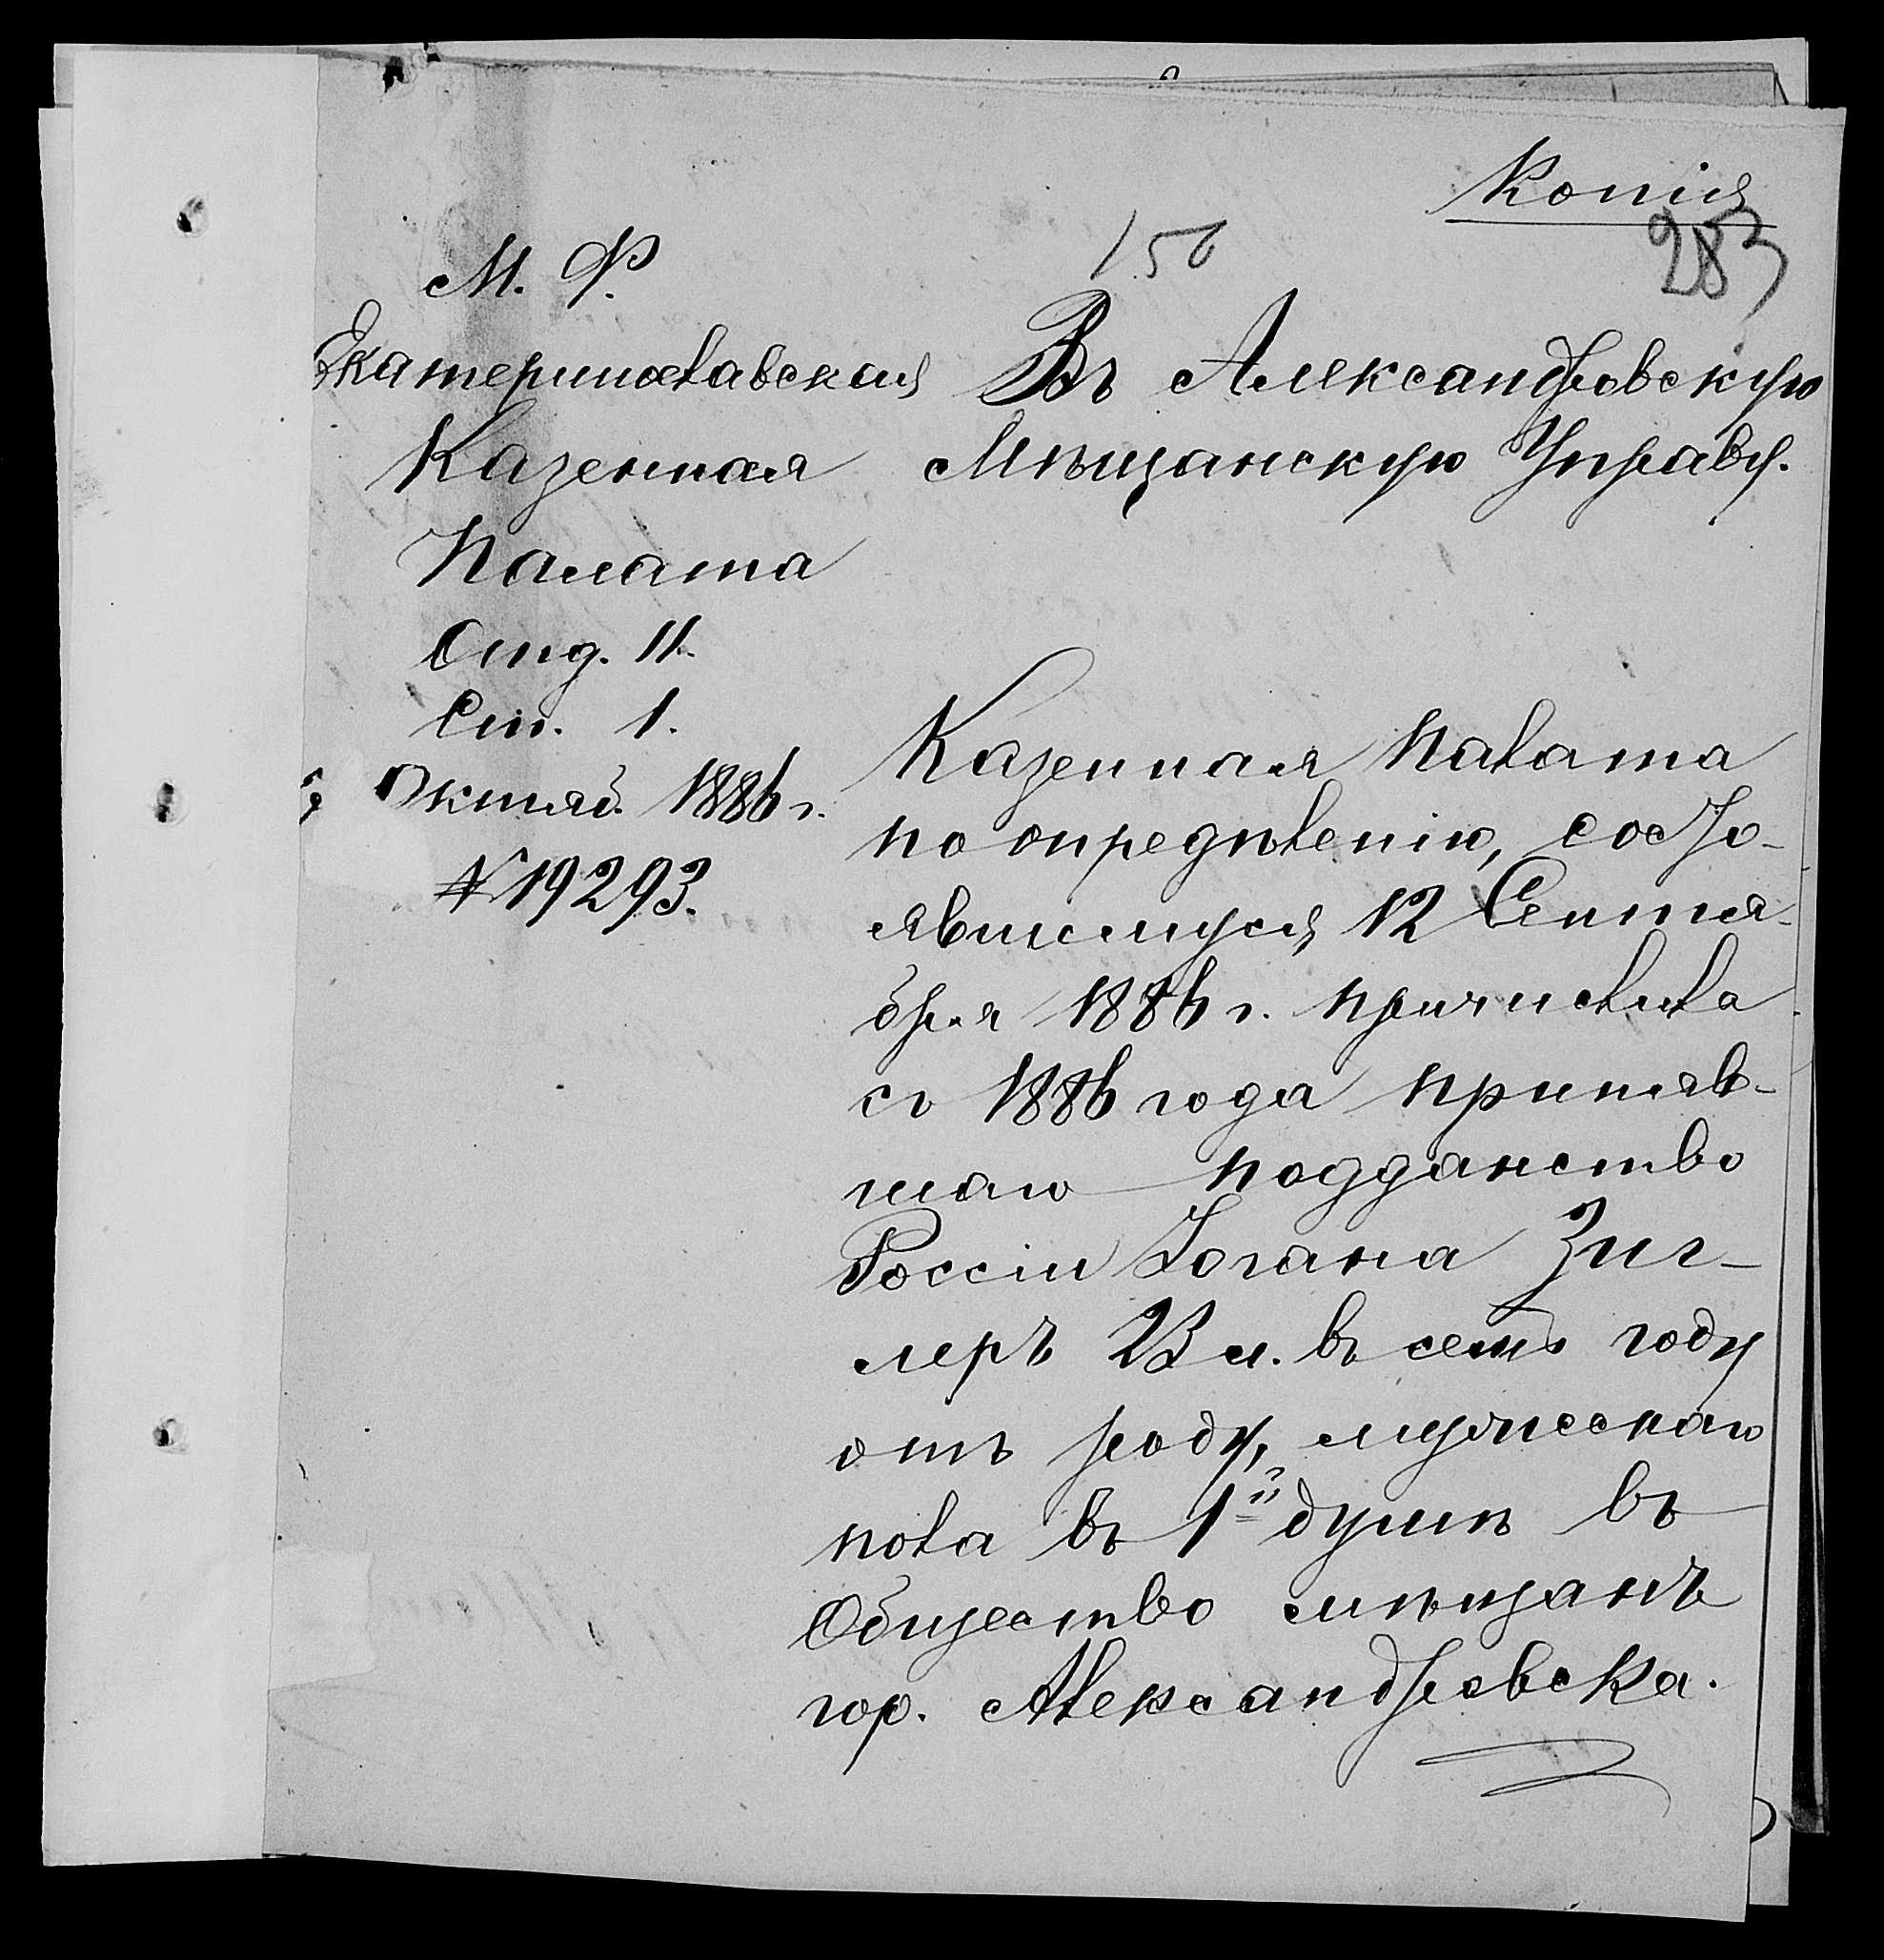 Копія
283
150
М. Ф.
Екатеринославская
Казенная
Палата
Отд. II.
Ст. 1.
Октяб. 1886 г.
№ 19293.
Въ Александровскую
Мѣщанскую Управу.
Казенная Палата
по опредѣленію, состо-
явшемуся 12 Сентя-
бря 1886 г. причислила
съ 1886 года приняв-
шаго подданство
Россіи Іогана Зиг-
леръ 23 л. въ семъ году
отъ роду, мужескаго
пола въ 1й душѣ въ
Общество мѣщанъ
гор. Александровска.